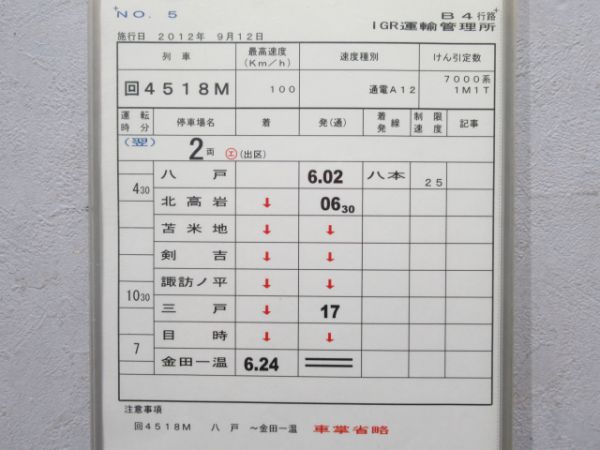 NO. 5
B4行路
IGR運輸管理所
施行日 2012年 9月12日
列車 最高速度(Km/h) 速度種別 けん引定数
回4518M 100 通電A12 7000系 1M1T
運転時分 停車場名 着 発(通) 着発線 制限速度 記事
(翌) 2両 ㋓(出区)
八戸 6.02 八本 25
4 30
北高岩 ↓ 06 30
苫米地 ↓ ↓
剣吉 ↓ ↓
諏訪ノ平 ↓ ↓
10 30
三戸 ↓ 17
目時 ↓ ↓
7
金田一温 6.24
注意事項
回4518M 八戸 ~金田一温 車掌省略